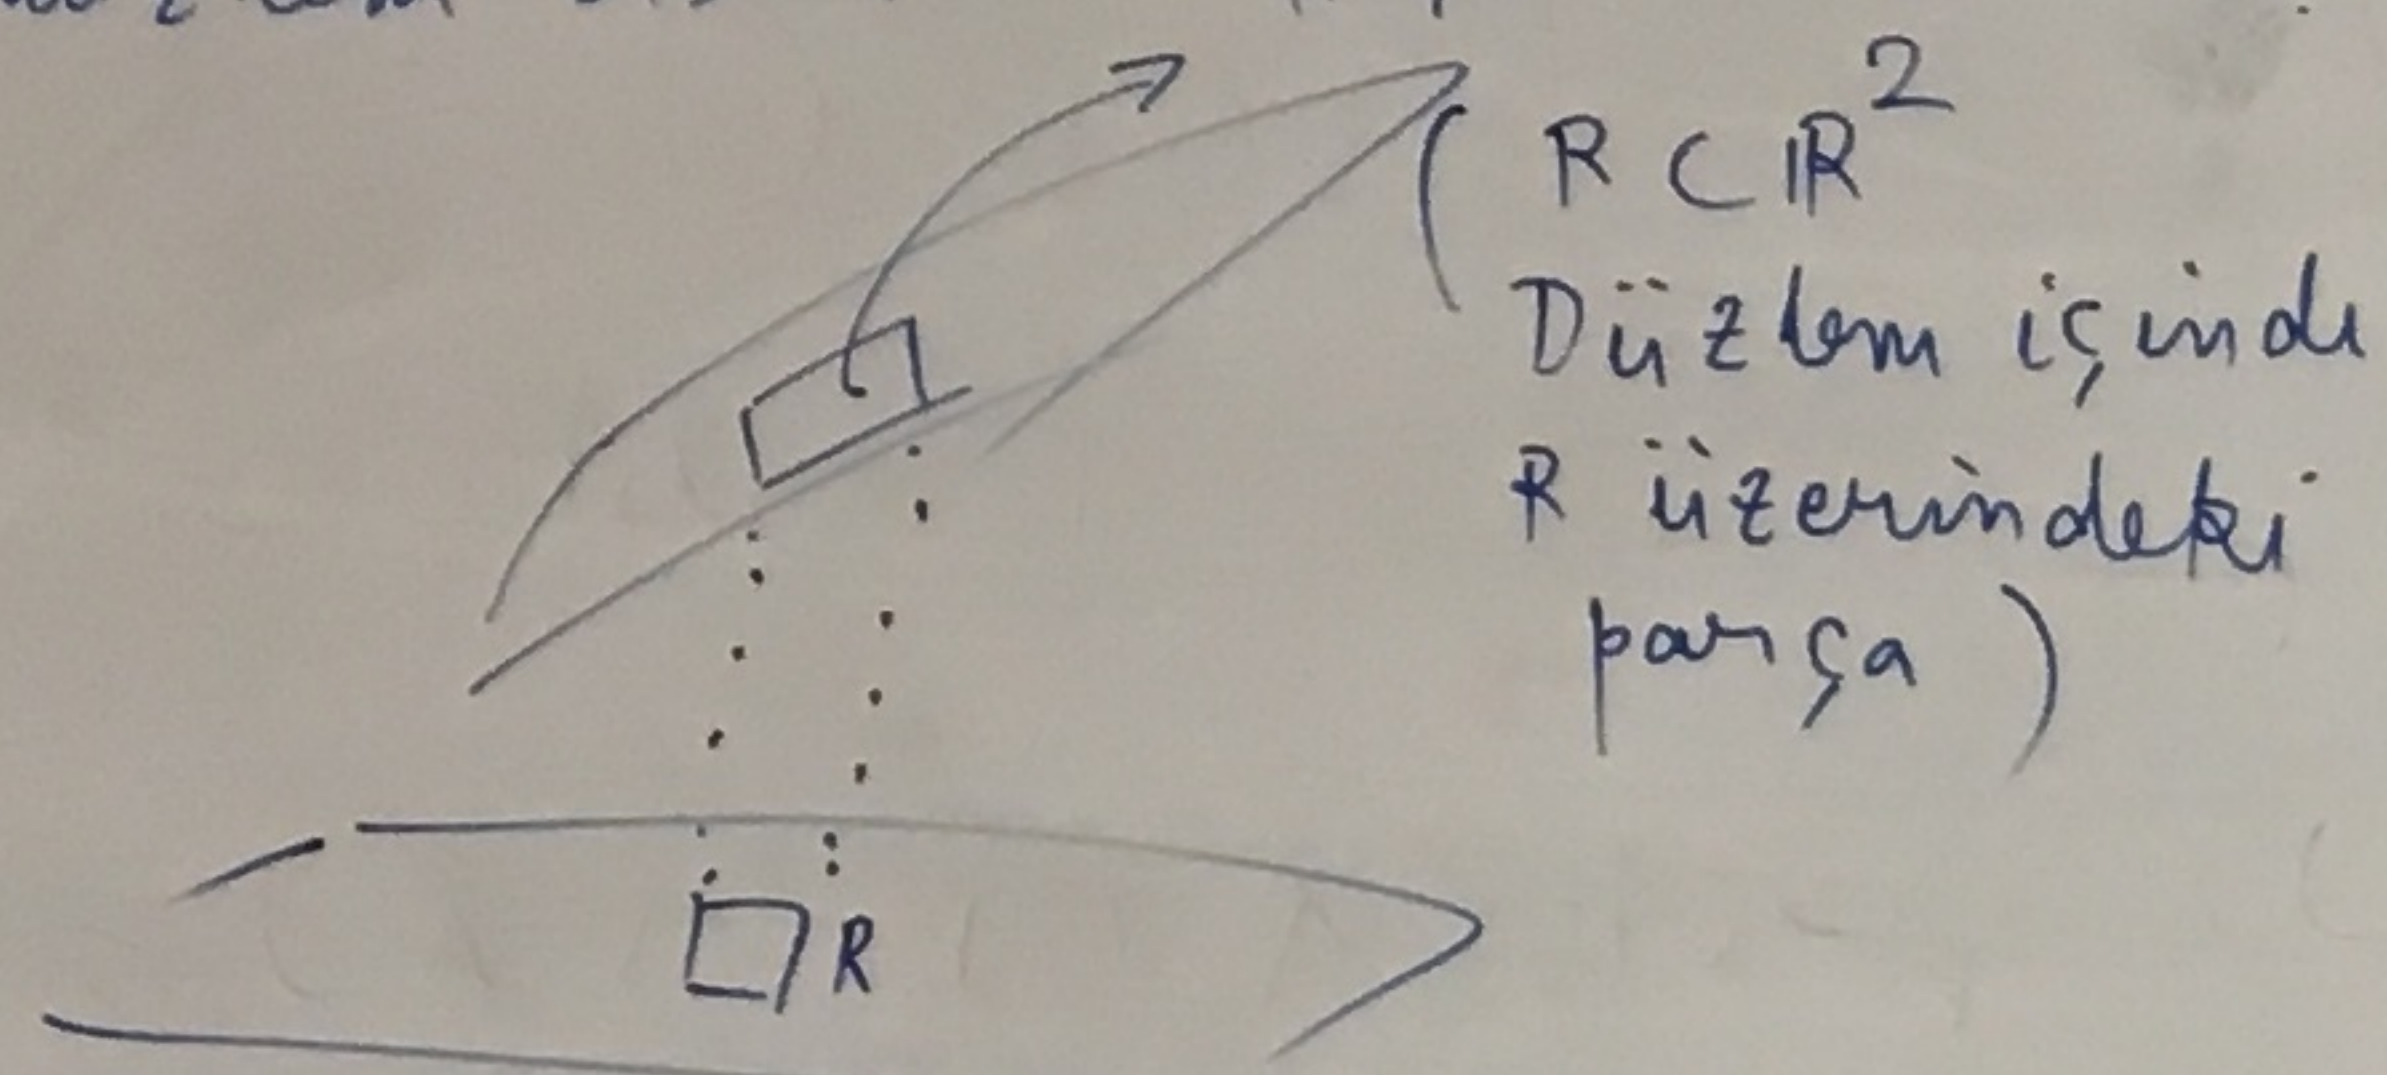 ( R ⊂ ℝ²
Düzlem içinde
R üzerindeki
parça )
R